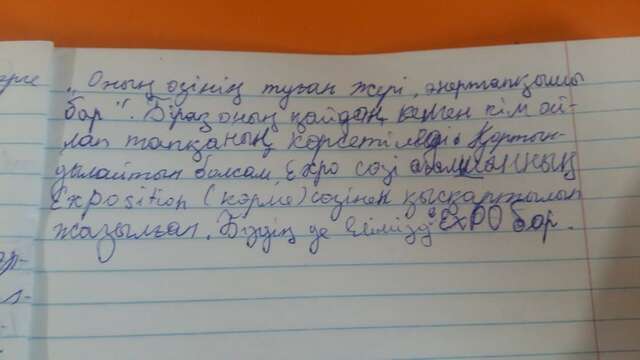 „Оның өзінің туған жері, өнертапқышы
бар". Біраз оның қайдан келген кім ой-
лап тапқаның көрсетілмеді. Қортын-
дылайтын болсам, Expo сөзі ағылшынның
Exposition (көрме) сөзінен қысқартылып
жазылған. Біздің де елімізде EXPO бар.